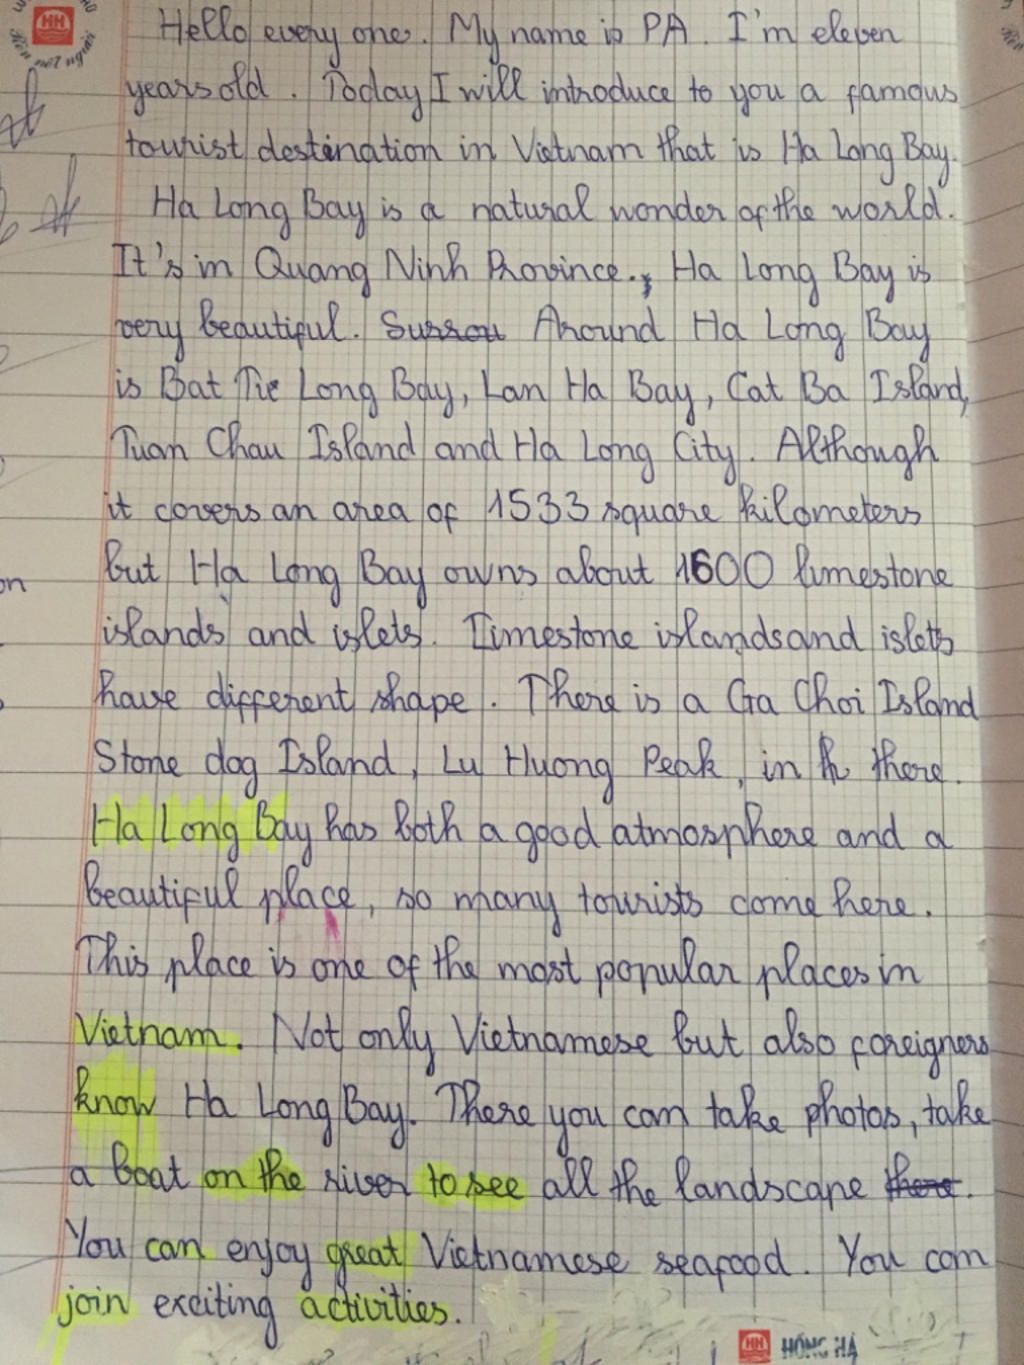 HH
Hello every one. My name is PA. I'm eleven
years old. Today I will introduce to you a famous
tourist destination in Vietnam that is Ha Long Bay.
Ha Long Bay is a natural wonder of the world.
It's in Quang Ninh Province., Ha Long Bay is
very beautiful. Surrou Around Ha Long Bay
is Bat Tie Long Bay, Lan Ha Bay, Cat Ba Island,
Tuan Chau Island and Ha Long City. Although
it covers an area of 1533 square kilometers
on
but Ha Long Bay owns about 1600 limestone
islands and islets. Limestone islands and islets
have different shape. There is a Ga Choi Island
Stone dog Island, Lu Huong Peak, in th there.
Ha Long Bay has both a good atmosphere and a
beautiful place, so many tourists come here.
This place is one of the most popular places in
Vietnam. Not only Vietnamese but also foreigners
know Ha Long Bay. There you can take photos, take
a boat on the river to see all the landscape there.
You can enjoy great Vietnamese seafood. You can
join exciting activities.
HH HỒNG HÀ